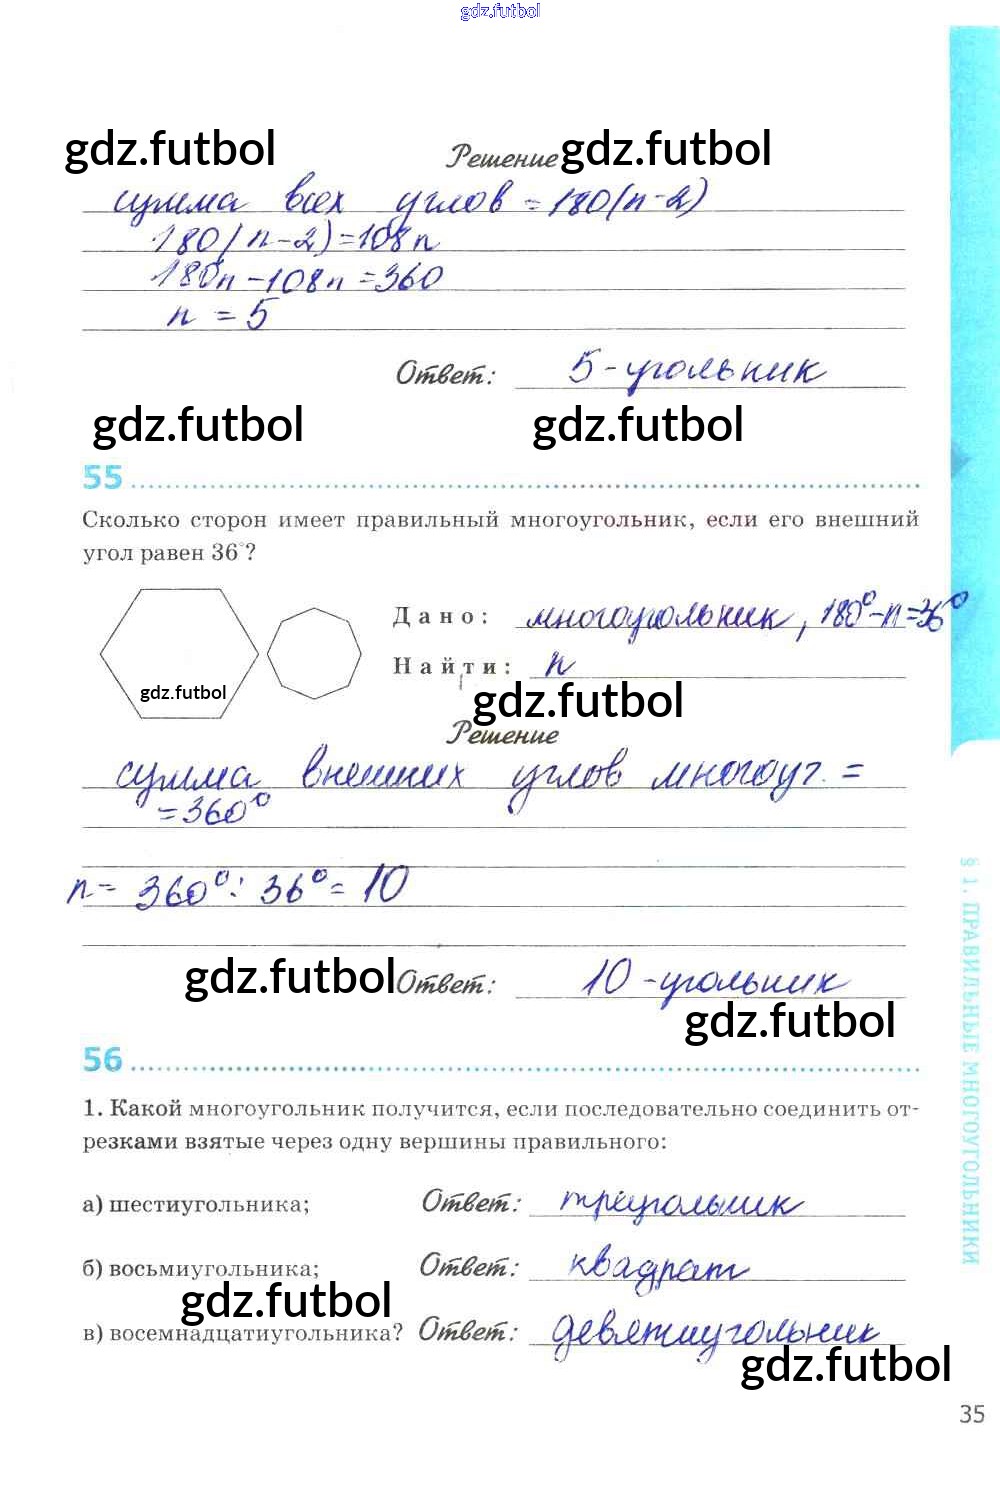 gdz.futbol
gdz.futbol Решение gdz.futbol
сумма всех углов = 180(n-2)
180(n-2)=108n
180n-108n=360
n = 5
Ответ: 5-угольник
gdz.futbol gdz.futbol
55
Сколько сторон имеет правильный многоугольник, если его внешний
угол равен 36°?
Дано: многоугольник, 180°-n=36°
gdz.futbol
Найти: n
gdz.futbol
Решение
сумма внешних углов многоуг. =
=360°
n= 360°: 36°= 10
gdz.futbol Ответ: 10-угольник
gdz.futbol
56
1. Какой многоугольник получится, если последовательно соединить от-
резками взятые через одну вершины правильного:
а) шестиугольника; Ответ: треугольник
б) восьмиугольника; Ответ: квадрат
gdz.futbol
в) восемнадцатиугольника? Ответ: девятиугольник
gdz.futbol
§ 1. ПРАВИЛЬНЫЕ МНОГОУГОЛЬНИКИ
35